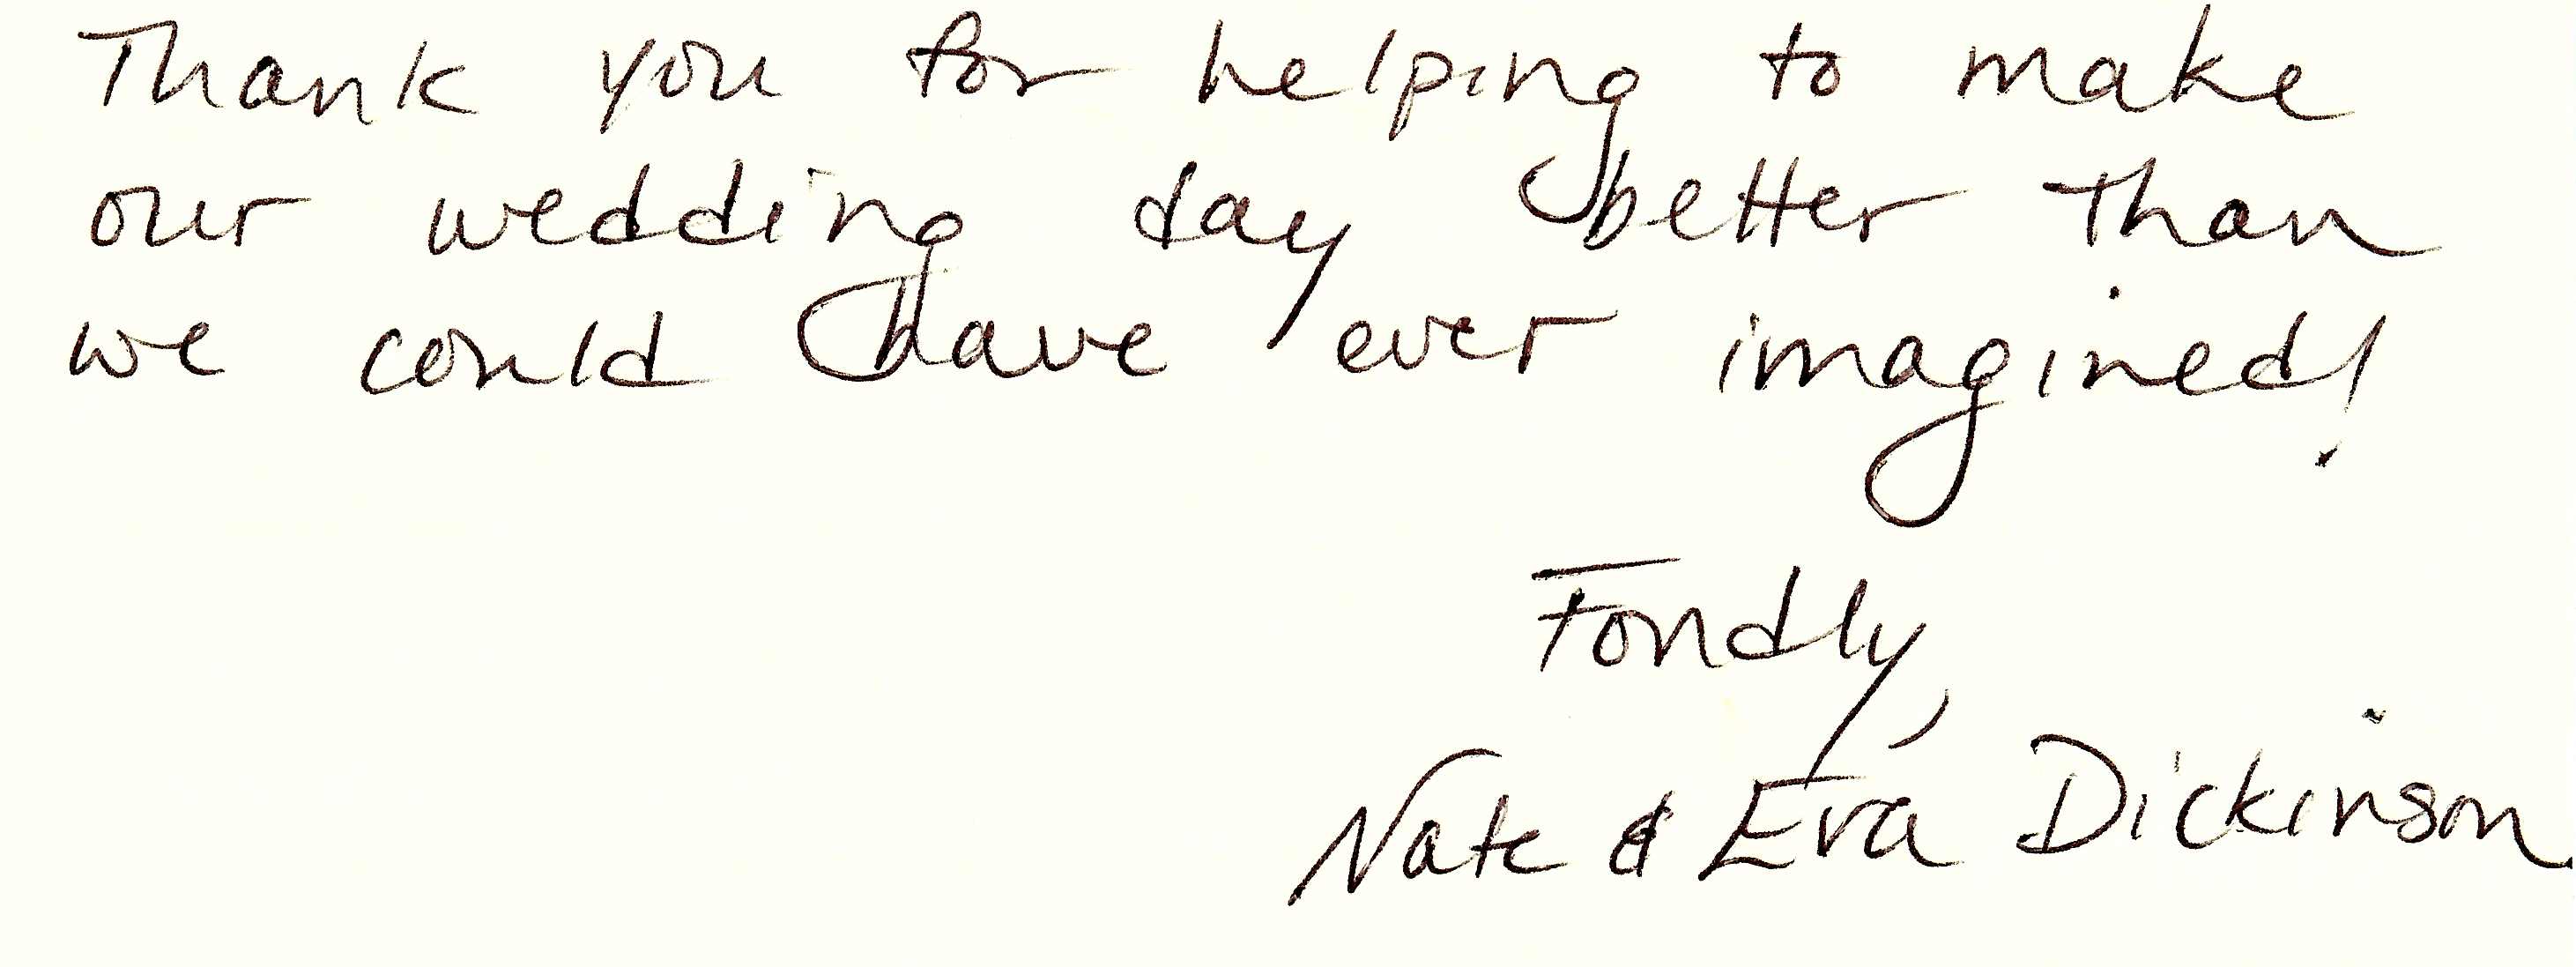 Thank you for helping to make
our wedding day better than
we could have ever imagined!
Fondly,
Nate & Eva Dickinson